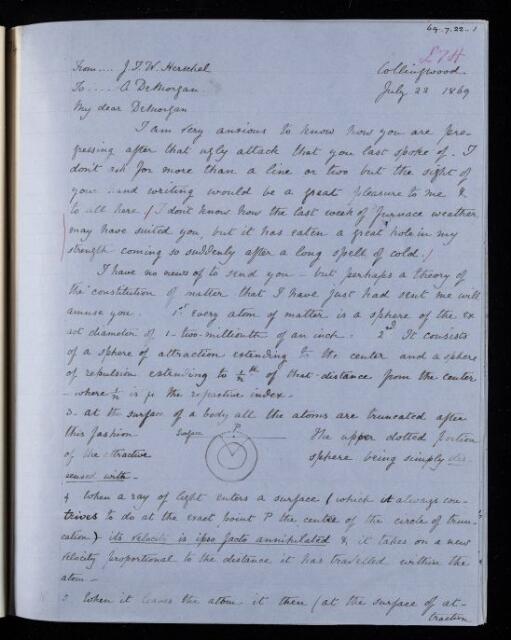 69.7.22.1
L74
From.... J.F.W. Herschel
Collingwood
To..... A DeMorgan
July 22 1869
My dear DeMorgan
I am very anxious to know how you are pro-
gressing after that ugly attack that you last spoke of. I
don't ask for more than a line or two but the sight of
your hand writing would be a great pleasure to me &
to all here / I don't know how the last week of furnace weather
may have suited you, but it has eaten a great hole in my
strength coming so suddenly after a long spell of cold. /
I have no news of to send you - but perhaps a theory of
the constitution of matter that I have just had sent me will
amuse you. 1st Every atom of matter is a sphere of the ex
act diameter of 1-two-millionth of an inch. 2nd It consists
of a sphere of attraction extending to the center and a sphere
of repulsion extending to 1/n th of that distance from the center
- where 1/n is μ the refractive index -
3. at the surface of a body all the atoms are truncated after
this fashion Surface P The upper dotted portion
of the attractive sphere being simply dis
sensed with -
4 When a ray of light enters a surface (which it always con-
trives to do at the exact point P the centre of the circle of trun-
cation) its velocity is ipso facto annihilated & it takes on a new
velocity proportional to the distance it has travelled within the
atom -
5. When it leaves the atom it then (at the surface of at-
traction